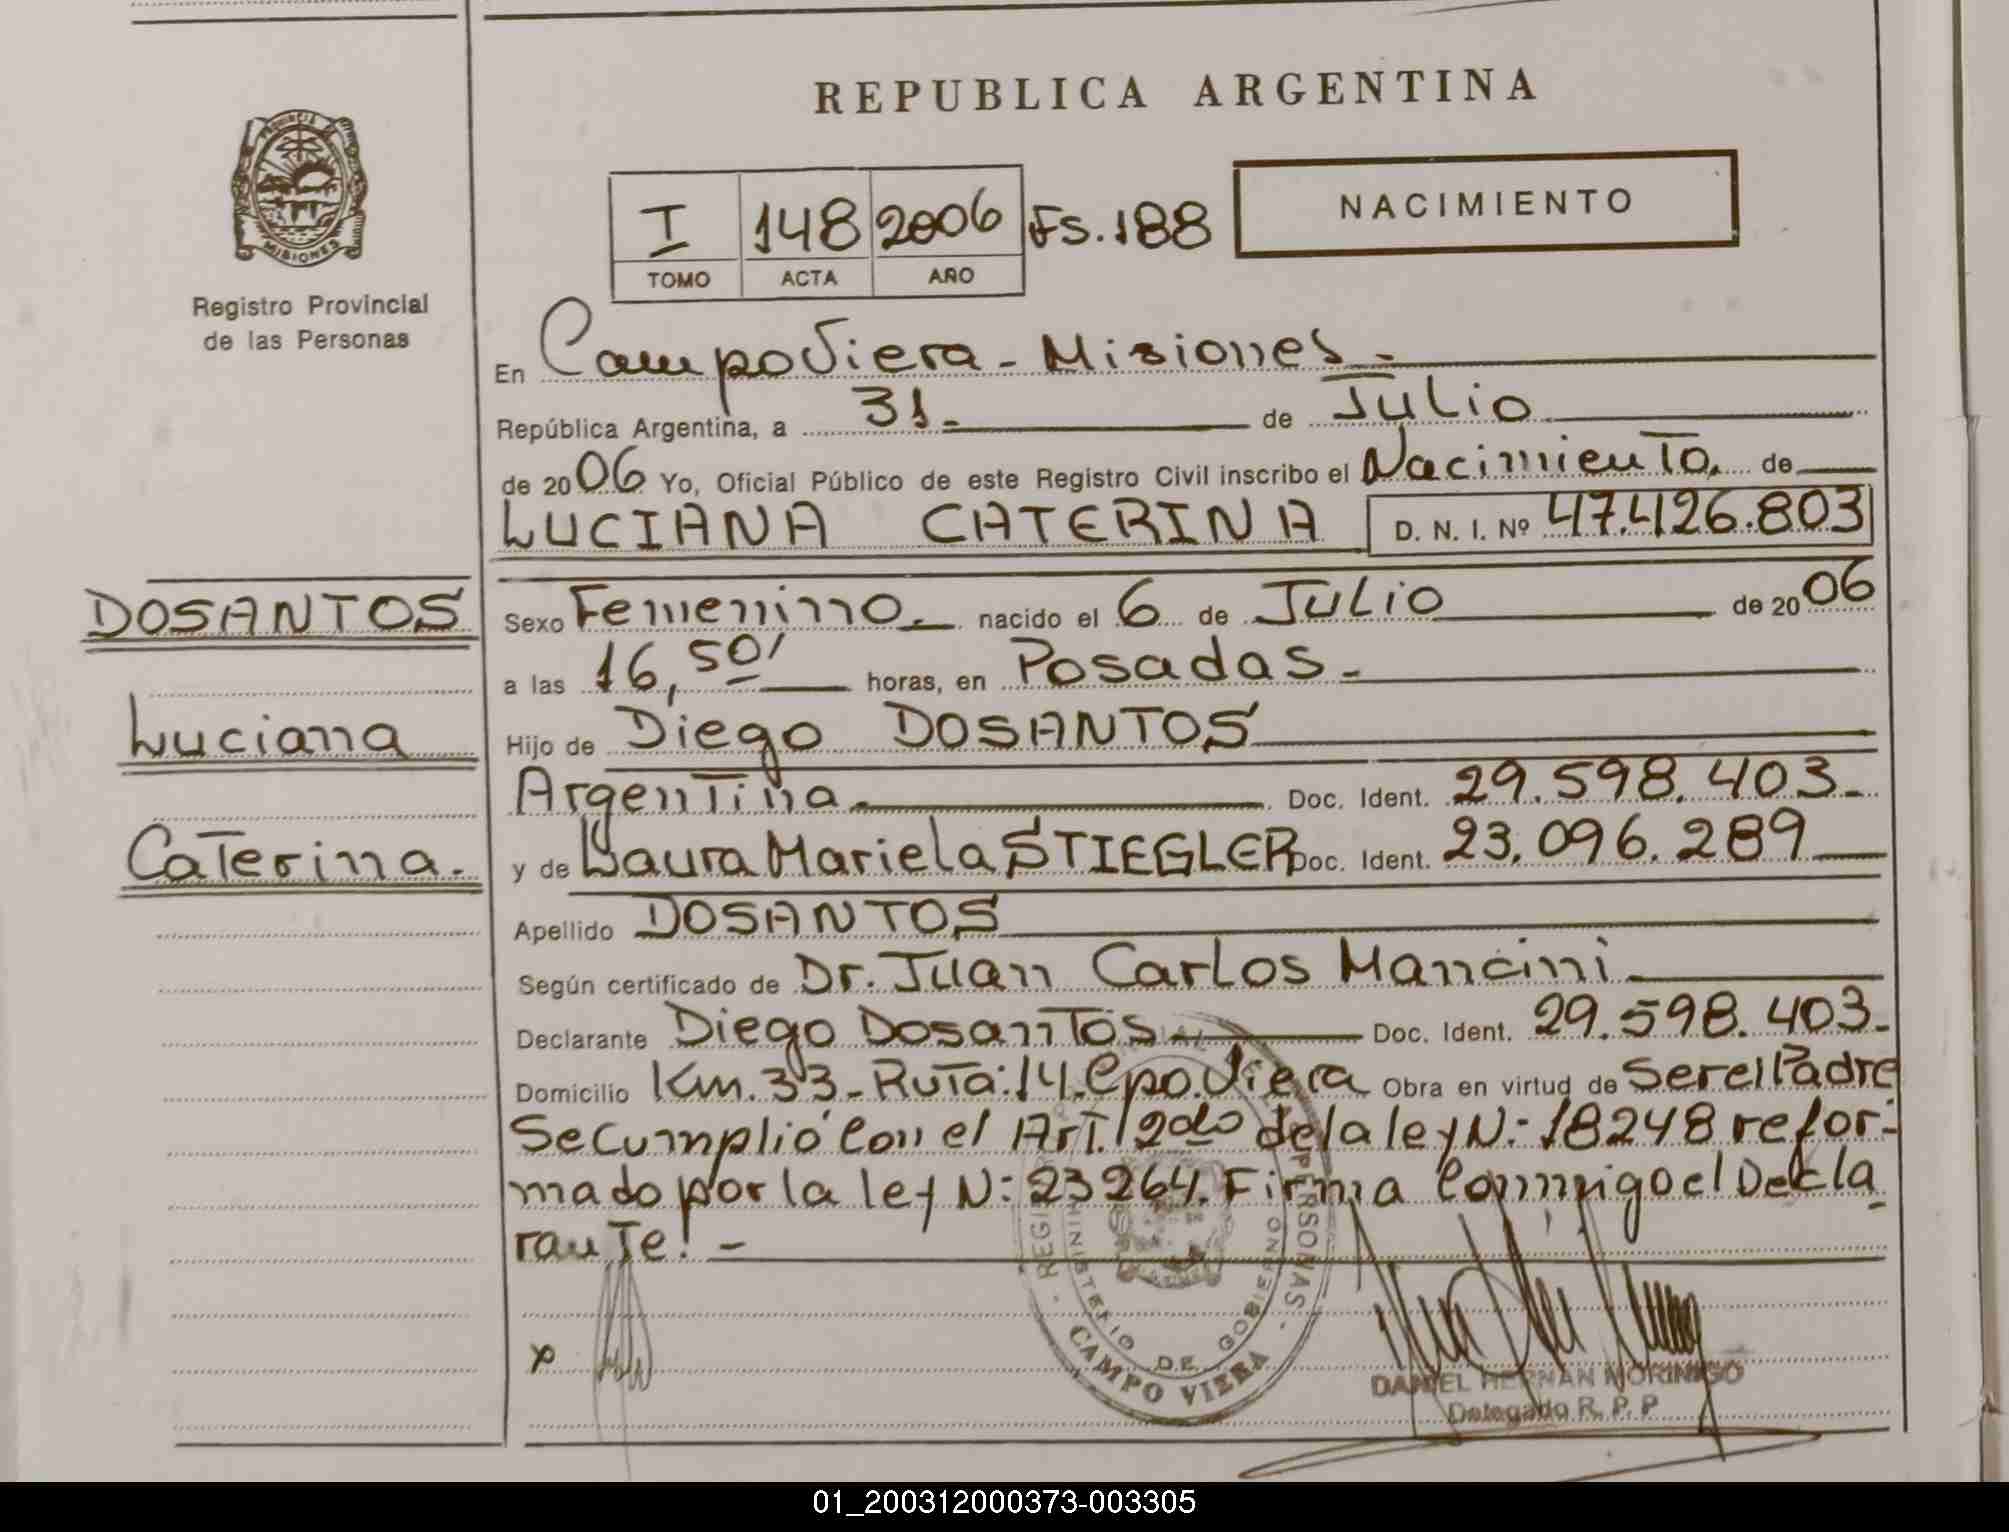 REPUBLICA ARGENTINA
PROVINCIA DE MISIONES
Registro Provincial
de las Personas
I 148 2006 Fs. 188
TOMO ACTA AÑO
NACIMIENTO
En Campo Viera - Misiones -
República Argentina, a 31 - de Julio
de 2006 Yo, Oficial Público de este Registro Civil inscribo el Nacimiento, de
LUCIANA CATERINA D. N. I. Nº 47.426.803
DOSANTOS
Luciana
Caterina.
Sexo Femenino. nacido el 6 de Julio de 2006
a las 16,50' horas, en Posadas -
Hijo de Diego DOSANTOS
Argentina. Doc. Ident. 29.598.403-
y de Laura Mariela STIEGLER Doc. Ident. 23.096.289
Apellido DOSANTOS
Según certificado de Dr. Juan Carlos Mancini
Declarante Diego Dosantos Doc. Ident. 29.598.403-
Domicilio Km. 33 - Ruta: 14. Cpo. Viera Obra en virtud de Ser el Padre
Se cumplió con el Art. 2do de la ley N: 18248 refor-
mado por la ley N: 23264. Firma Conmigo el Decla
rante! -
x
REGISTRO PERSONAS
MINISTERIO DE GOBIERNO
CAMPO VIERA
DANIEL HERNAN MORINIGO
Delegado R. P. P
01_200312000373-003305